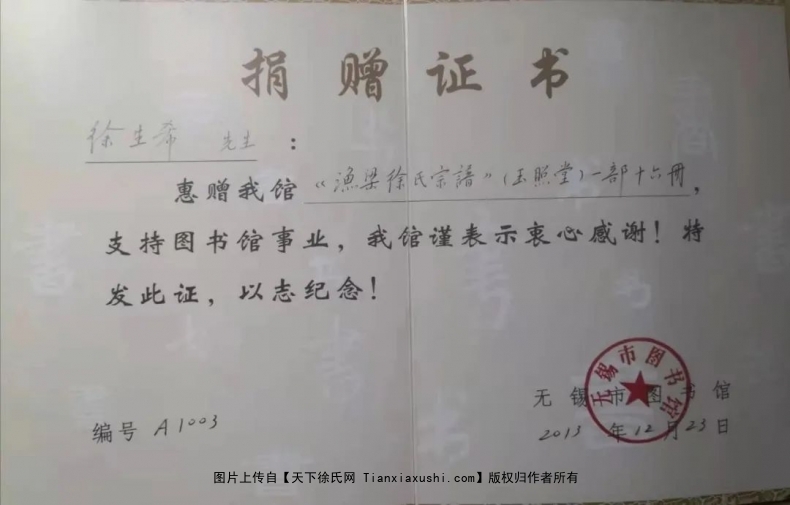 捐赠证书
徐生希 先生：
惠赠我馆《漁梁徐氏宗譜》(玉照堂)一部十六冊，
支持图书馆事业，我馆谨表示衷心感谢！特
发此证，以志纪念！
无锡市图书馆
无锡市图书馆
编号 A1003
2013 年 12 月 23 日
图片上传自【天下徐氏网 Tianxiaxushi.com】版权归作者所有